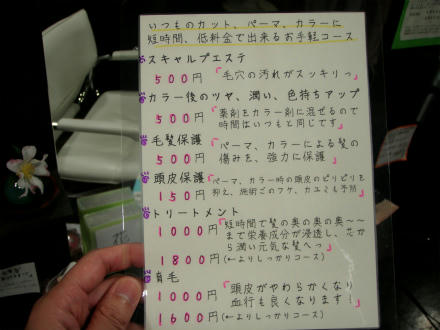 いつものカット、パーマ、カラーに
短時間、低料金で出来るお手軽コース
スキャルプエステ
500円「毛穴の汚れがスッキリっ」
カラー後のツヤ、潤い、色持ちアップ
500円「薬剤をカラー剤に混ぜるので
時間はいつもと同じです」
毛髪保護
500円「パーマ、カラーによる髪の
傷みを、強力に保護」
頭皮保護「パーマ、カラー時の頭皮のピリピリを
150円 抑え、施術ごのフケ、カユミも予防」
トリートメント
1000円「短時間で髪の奥の奥の奥〜〜
まで栄養成分が浸透し、芯か
ら潤い元気な髪へっ」
1800円(←よりしっかりコース)
育毛
1000円「頭皮がやわらかくなり
血行も良くなります!」
1600円(←よりしっかりコース)